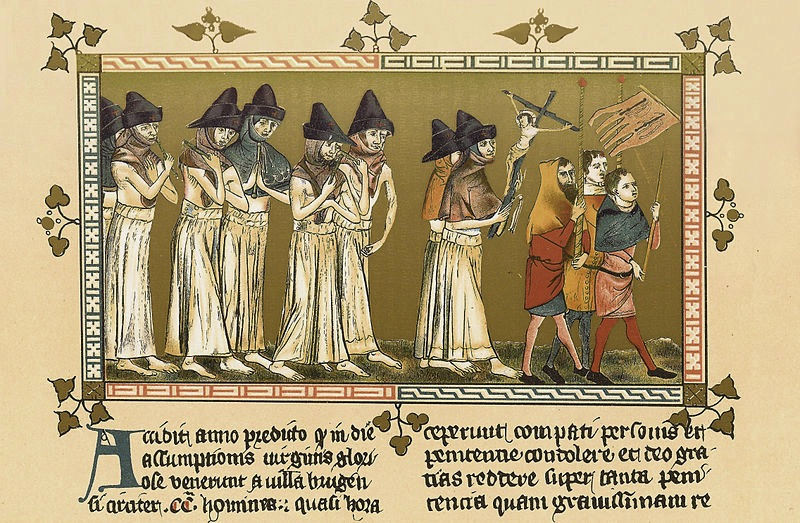 Accidit anno predicto q in die
assumptionis uirginis glori
ose venerunt a villa brugen
si circiter .CC. homines: quasi hora
ceperunt compati personis et
penitentie condolere et deo gra
tias reddere super tanta peni
tencia quam gravissimam re